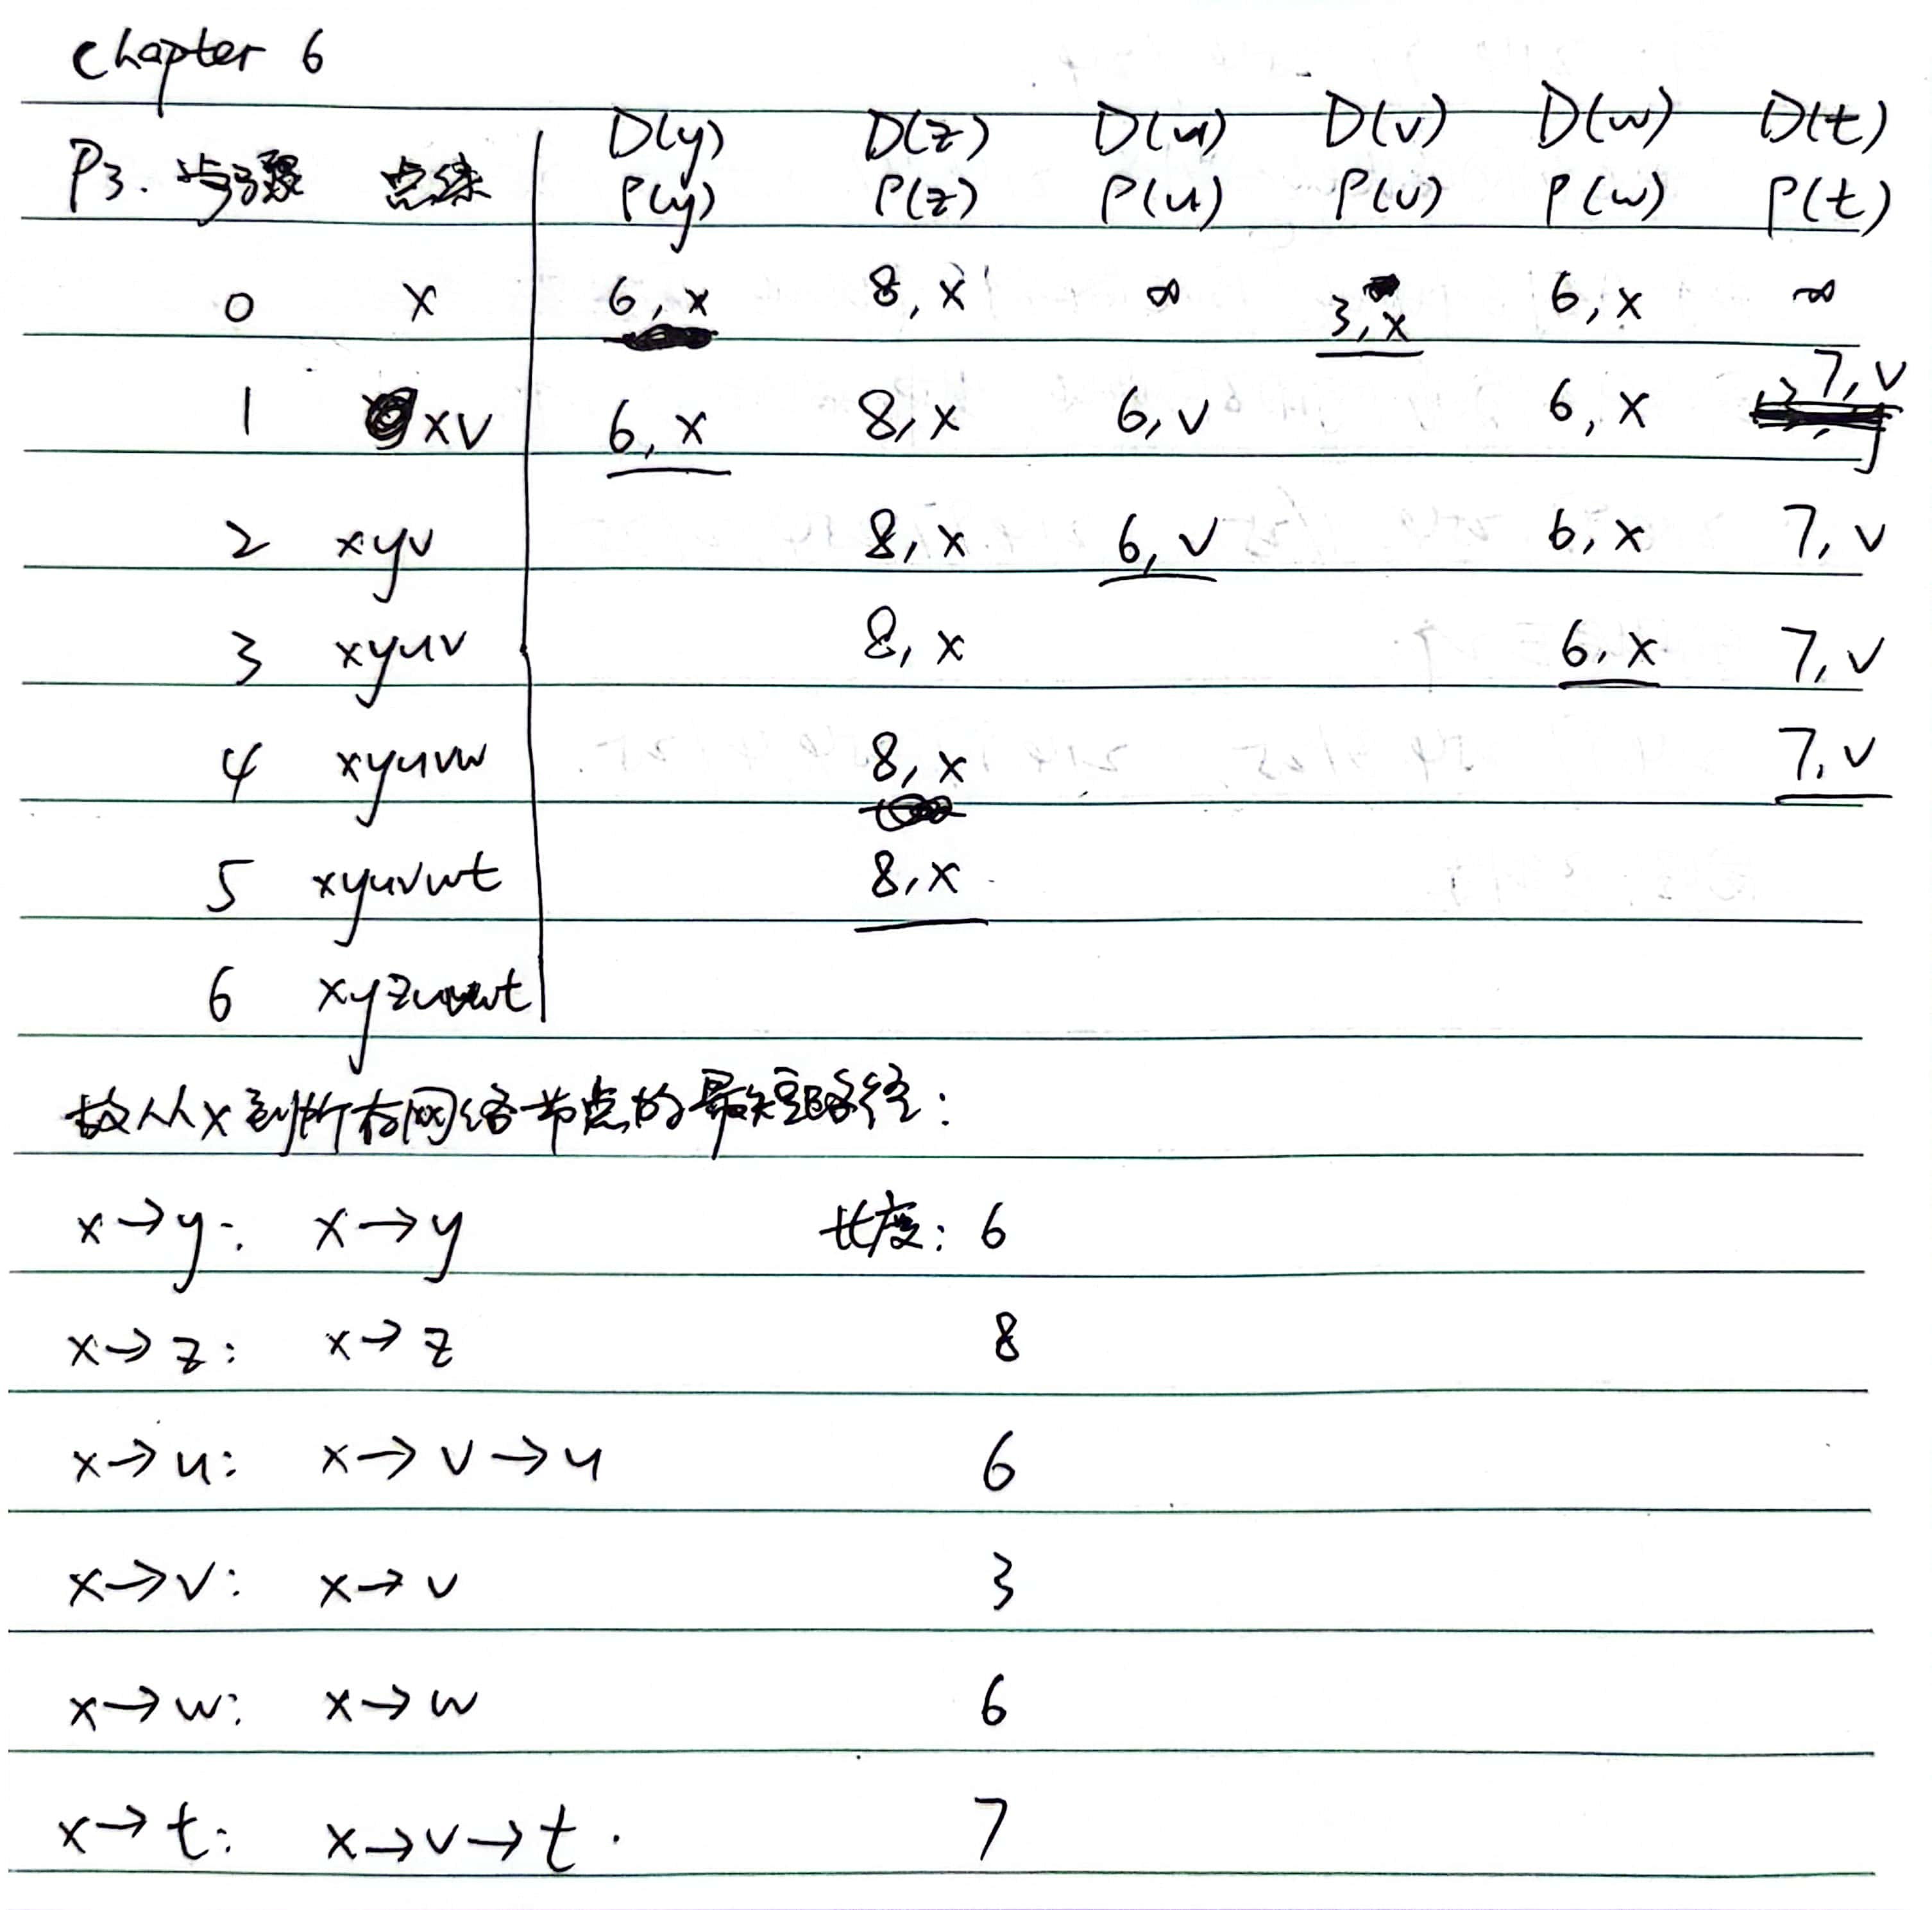 chapter 6
D(y) D(z) D(u) D(v) D(w) D(t)
P3. 步骤 点集 P(y) P(z) P(u) P(v) P(w) P(t)
0 x 6,x 8,x ∞ 3,x 6,x ∞
1 xv 6,x 8,x 6,v 6,x 7,v
2 xyv 8,x 6,v 6,x 7,v
3 xyuv 8,x 6,x 7,v
4 xyuvw 8,x 7,v
5 xyuvwt 8,x
6 xyzuvwt
故从x到所有网络节点的最短路径:
x→y: x→y 长度: 6
x→z: x→z 8
x→u: x→v→u 6
x→v: x→v 3
x→w: x→w 6
x→t: x→v→t. 7